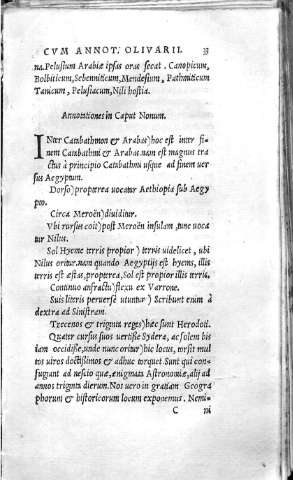 CVM ANNOT. OLIVARII. 33
na. Pelusium Arabiæ ipsas oras secat. Canopicum,
Bolbiticum, Sebenniticum, Mendesium, Pathmiticum
Taniticum, Pelusiacum, Nili hostia.
Annotationes in Caput Nonum.
INter Catabathmon & Arabas) hoc est inter fi-
nem Catabathmi & Arabas nam est magnus tra
ctus à principio Catabathmi usque ad finem uer
sus Aegyptum.
Dorso) propterea uocatur Aethiopia sub Aegy
pto.
Circa Meroën) diuiditur.
Vbi rorsus coit) post Meroën insulam, tunc uoca
tur Nilus.
Sol Hyeme terris propior) terris uidelicet, ubi
Nilus oritur. nam quando Aegyptijs est hyems, illis
terris est æstas, propterea, Sol est propior illis terris.
Continuo anfractu) flexu ex Varrone.
Suis literis peruersè utuntur) Scribunt enim à
dextra ad Sinistram.
Trecenos & triginta reges) hæc sunt Herodoti.
Quater cursus suos uertisse Sydera, ac solem bis
iam occidisse, unde nunc oritur) hic locus, torsit mul
tos uiros doctissimos & adhuc torquet. Sunt qui con-
fugiant ad nescio quæ, ænigmata Astronomiæ, alij ad
annos triginta dierum. Nos uero in gratiam Geogra
phorum & historicorum locum exponemus. Nemi-
C ni